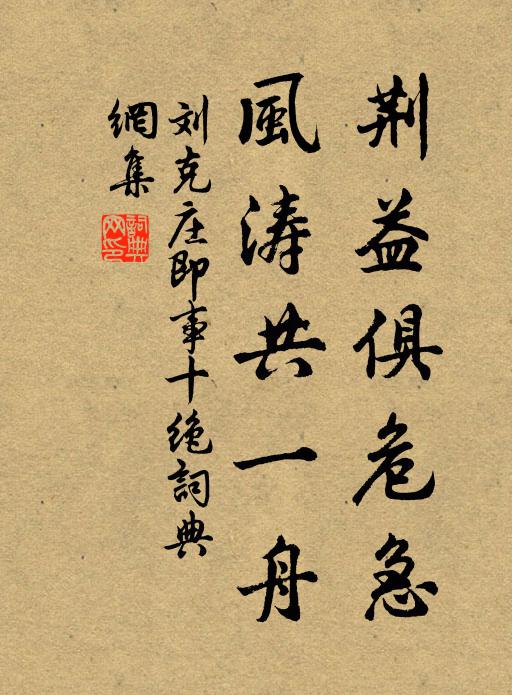 荆益俱危急
風涛共一舟
刘克庄即事十绝詞典
網集
詞典网印